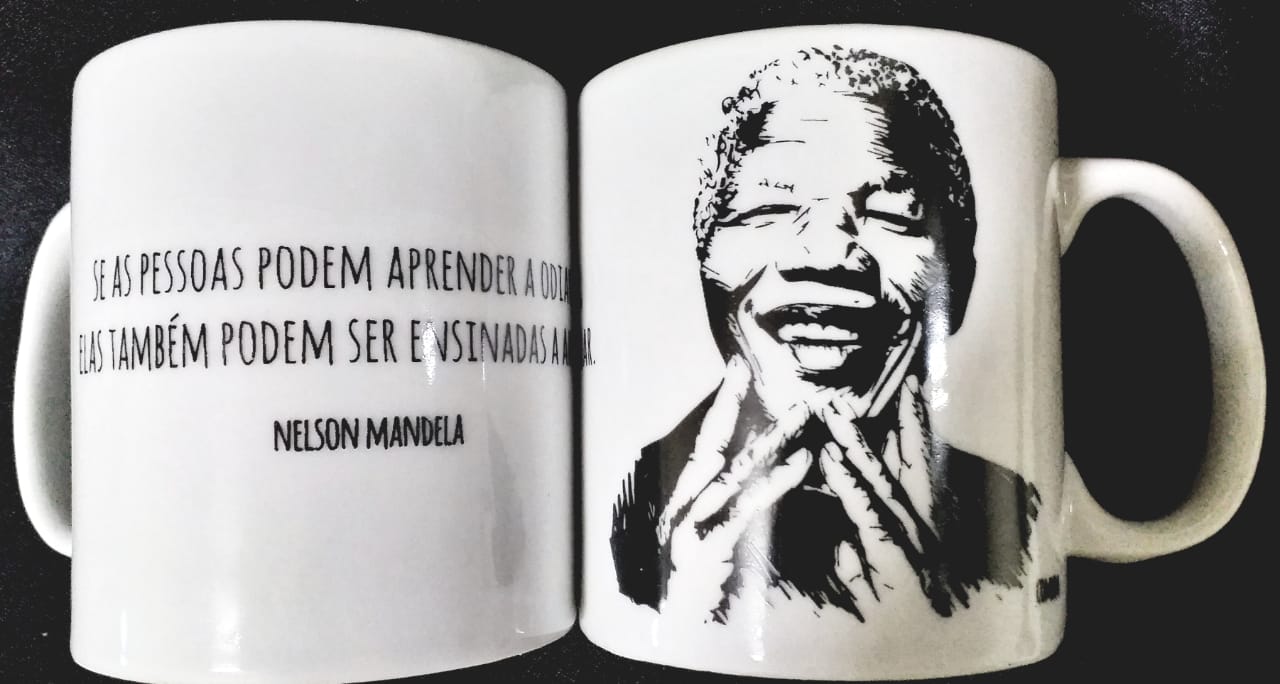 SE AS PESSOAS PODEM APRENDER A ODIA
ELAS TAMBÉM PODEM SER ENSINADAS A
NELSON MANDELA